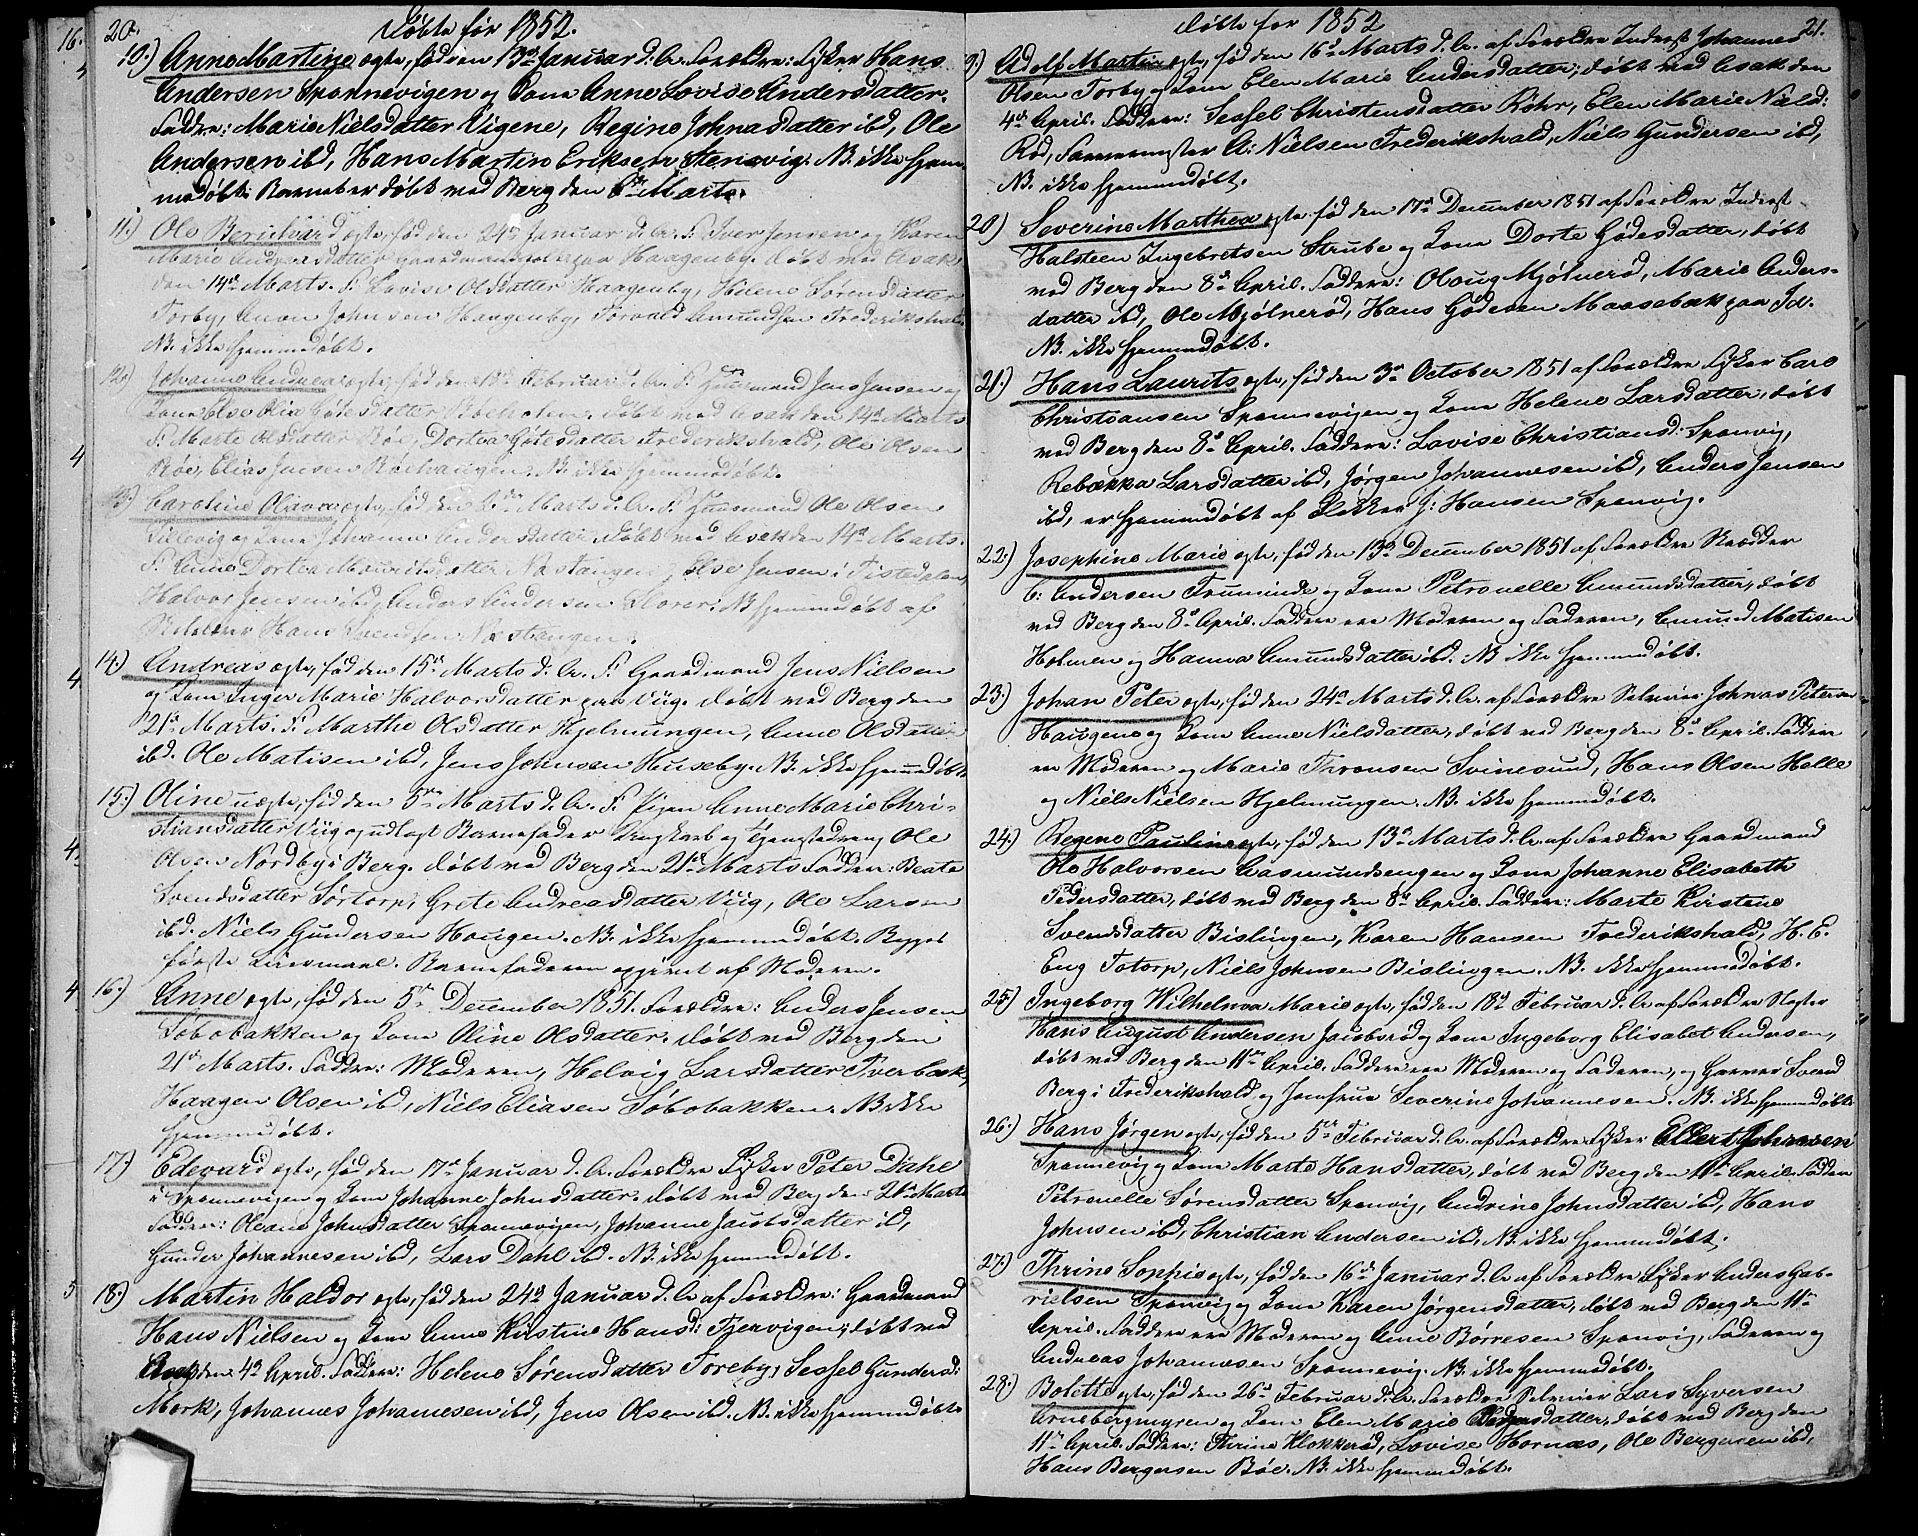 20.
Døbte før 1852.
10.) Anne Martine ægte, fød den 13de Januar d. Ar. Forældre: Fisker Hans
Andersen Sponnevigen og Kone Anne Lovise Andersdatter.
Faddere: Marie Nielsdatter Vigene, Regine Johnasdatter ibd, Ole
Andersen ibd, Hans Martin Eriksen Stensvig. NB. ikke hjem-
medøbt. Barnet er døbt ved Berg den 6te Marts.
11.) Ole Bernhard ægte, fød den 24de Januar d. Ar. F. Iver Jensen og Karen
Marie Andreasdatter paa Haagenby. døbt ved Asak
den 14de Marts. F. Lovise Olsdatter Haagenby, Helene Sørensdatter
Torby, Johnsen Haagenby, Torvald Amundsen Frederikshald
NB. ikke hjemmedøbt.
12.) Johanne Andrea ægte, fød den Februar d. Ar. F. Huusmand Jens Jensen og
Kone Else Olia Gødesdatter døbt ved Asak den 14de Marts
F. Marte Olsdatter Röe, Dortea Gødesdatter Frederikshald, Ole Olsen
Röe, Elias Jensen NB. ikke hjemmedøbt.
13.) Caroline Olava ægte, fød den Marts d. Ar. F. Huusmand Ole Olsen
og Kone Johanne Andersdatter, døbt ved Asak den 14de Marts.
F. Anne Dortea Mauritsdatter Næstangen, Else Jensen i Tistedalen,
Halvor Jensen ibd, Anders Andersen NB. hjemmedøbt af
Hans Svendsen Næstangen.
14.) Andreas ægte, fød den 15de Marts d. Ar. F. Gaardmand Jens Nielsen
og Kone Inger Marie Halvorsdatter paa Viig. døbt ved Berg den
21de Marts. F. Marthe Olsdatter Hjelmungen, Anne Olsdatter
ibd. Ole Matisen ibd, Jens Johnsen Huseby. NB. ikke hjemmedøbt
15.) Oline uægte, fød den 5te Marts d. Ar. F. Pigen Anne Marie Chri-
stiansdatter Viig og udlagt Barnefader Ungkarl og Tjenestedreng Ole
Olsen Nordby i Berg. døbt ved Berg den 21de Marts Faddere: Beate
Svendsdatter Sørtorp, Grete Andreasdatter Viig, Ole Larsen
ibd. Niels Gundersen Haugen. NB. ikke hjemmedøbt. Begges
første Leiermaal. Barnefaderen opgivet af Moderen.
16.) Anne ægte, fød den 5te December 1851. Forældre: Anders Jensen
Søbobakken og Kone Oline Olsdatter. døbt ved Berg den
21de Marts. Faddere: Moderen, Helvig Larsdatter Tverbæk,
Haagen Olsen ibd, Niels Eliasen Søbobakken. NB. ikke
hjemmedøbt.
17.) Edevard ægte, fød den 17de Januar d. Ar. Forældre Fisker Peter Dahl
i Sponnevigen og Kone Johanne Johnsdatter. døbt ved Berg den 21de Marts
Faddere: Oleane Johnsdatter Sponnevigen, Johanne Jacobsdatter ibd,
Gunder Johannesen ibd, Lars Dahl ibd. NB. ikke hjemmedøbt.
18.) Martin Haldor ægte, fød den 24de Januar d. Ar af Forældre: Gaardmand
Hans Nielsen og Kone Anne Kirstine Hansd: Tjervigen, døbt ved
Asak den 4de April. Faddere: Helene Sørensdatter Toreby, Sessel Gundersd:
Mork, Johannes Johannesen ibd, Jens Olsen ibd. NB. ikke hjemmedøbt
Døbte før 1852
21.
9.) Adolf Martin ægte, fød den 16de Marts d. Ar. af Forældre Inderst Johannes
Olsen Torby og Kone Elen Marie Andersdatter; døbt ved Asak den
4de April. Faddere: Sessel Christensdatter Röhr, Elen Marie Nield:
Rød, A: Nielsen Frederikshald, Niels Gundersen ibd,
NB. ikke hjemmedøbt.
20.) Severine Marthea ægte fød den 17de December 1851 af Forældre Inderst
Halsteen Ingebretsen Strube og Kone Dorte Gødesdatter, døbt
ved Berg den 8de April. Faddere: Oloug Mjølnerød, Marie Anders-
datter ibd, Ole Mjølnerød, Hans Gødesen Maasebæk paa Id.
NB. ikke hjemmedøbt.
21.) Hans Laurits ægte, fød den 3de October 1851 af Forældre Fisker Carl
Christiansen Sponnevigen og Kone Helene Larsdatter, døbt
ved Berg den 8de April. Faddere: Lovise Christiansd: Sponvig,
Rebækka Larsdatter ibd, Jørgen Johannesen ibd, Anders Jensen
ibd, er hjemmedøbt af J: Hansen Sponvig.
22.) Josephine Marie ægte, fød den 13de December 1851 af Forældre Skrædder
C: Andersen og Kone Petronelle Amundsdatter, døbt
ved Berg den 8de April. Faddere ere Moderen og Faderen, Amund Matisen
Holmen og Hanna Amundsdatter ibd. NB ikke hjemmedøbt.
23.) Johan Peter ægte, fød den 24de Marts d. Ar. af Forældre Selveier Johnas Petersen
Haugene og Kone Anne Nielsdatter, døbt ved Berg den 8de April. Faddere
ere Moderen og Marie Thronsen Svinesund, Hans Olsen Helle
og Niels Nielsen Hjelmungen. NB. ikke hjemmedøbt.
24.) Regene Pauline ægte, fød den 13de Marts d. Ar. af Forældre Gaardmand
Ole Halvorsen Aasmundsengen og Kone Johanne Elisabeth
Pedersdatter, døbt ved Berg den 8de April. Faddere: Marte Kirstene
Svendsdatter Bislingen, Karen Hansen Frederikshald, H. E.
Eng Totorp, Niels Johnsen Bislingen. NB. ikke hjemmedøbt.
25.) Ingeborg Wilhelmina Marie ægte, fød den 18de Februar d. Ar af Forældre Slagter
Hans August Andersen Jacoberød og Kone Ingeborg Elisabet Andersen,
døbt ved Berg den 11te April. Faddere ere Moderen og Faderen, og Garver Svend
Berg i Frederikshald og Jomfrue Severine Johannesen. NB. ikke hjemmedøbt.
26.) Hans Jørgen ægte, fød den 5te Februar d. Ar. af Forældre Fisker Ellert Johnsen
Sponnevig og Kone Marte Hansdatter, døbt ved Berg den 11te April. Faddere
Petronelle Sørensdatter Sponvig, Andrine Johnsdatter ibd, Hans
Johnsen ibd, Christian Andersen ibd, NB. ikke hjemmedøbt.
27.) Thrine Sophie ægte, fød den 16de Januar d. Ar af Forældre Fisker Anders Gab-
rielsen Sponvig og Kone Karen Jørgensdatter, døbt ved Berg den 11te
April. Faddere ere Moderen og Anne Børresen Sponvig, Faderen og
Andreas Johannesen Sponnevig. NB. ikke hjemmedøbt.
28.) Bolette ægte, fød den 26de Februar d. Ar. Forældre Selveier Lars Syversen
Arnebergmyren og Kone Elen Marie døbt ved Berg den
11te April. Faddere: Thrine Klokkerød, Lovise Hornæs, Ole Bergersen ibd,
Hans Bergersen Böe. NB. ikke hjemmedøbt.